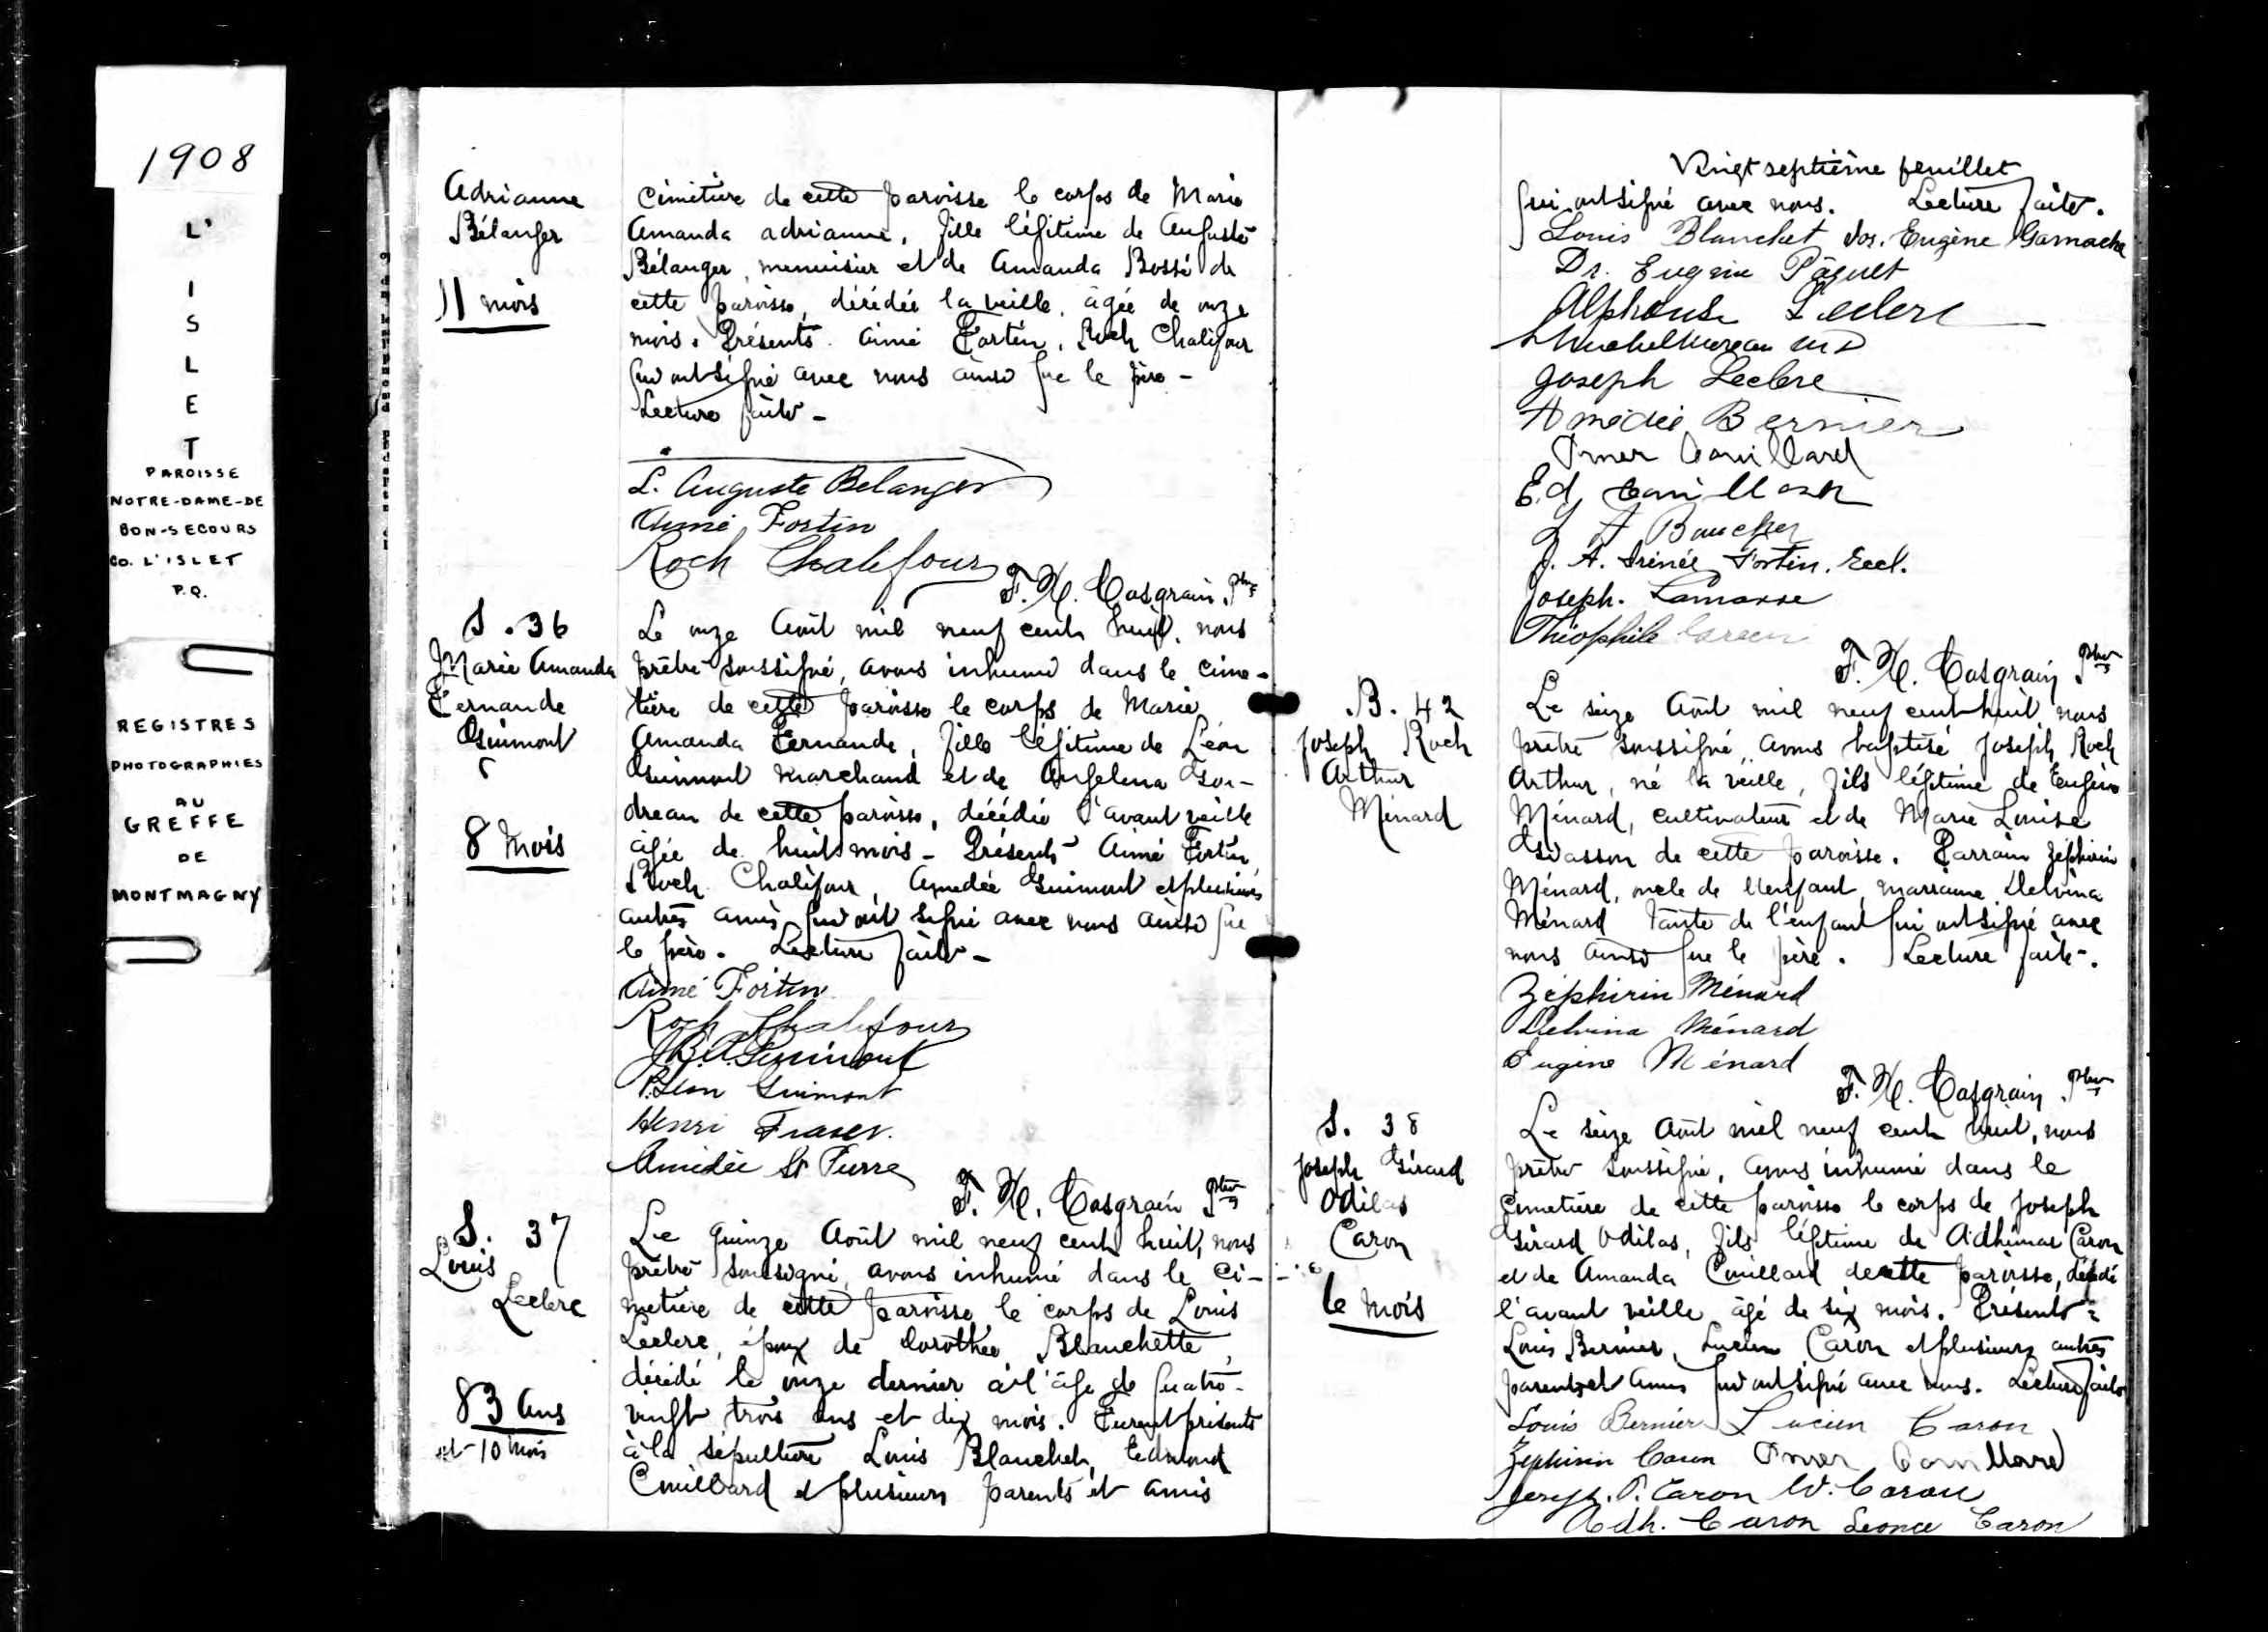 1908
L'
I
S
L
E
T
PAROISSE
NOTRE-DAME-DE
BON-SECOURS
CO. L'ISLET
P.Q.
REGISTRES
PHOTOGRAPHIES
AU
GREFFE
DE
MONTMAGNY
Adrianne
Bélanger
11 mois
Cimetière de cette paroisse le corps de Marie
Amanda Adrianne, fille légitime de Auguste
Bélanger, menuisier et de Amanda Bossé de
cette paroisse, décédée la veille, âgée de onze
mois. Présents Aimé Fortin, Roch Chalifour
qui ont signé avec nous ainsi que le père -
Lecture faite -
L. Auguste Belanger
Aimé Fortin
Roch Chalifour
F. X. Casgrain, Ptre
S. 36
Marie Amanda
Fernande
Guimont
8 mois
Le onze Août mil neuf cent huit, nous
prêtre soussigné, avons inhumé dans le cime-
tière de cette paroisse le corps de Marie
Amanda Fernande, fille légitime de Léon
Guimont marchand et de Angelina Gou-
dreau de cette paroisse, décédée l'avant veille
âgée de huit mois - Présents Aimé Fortin
Roch Chalifour, Amedée Guimont et plusieurs
autres amis qui ont signé avec nous ainsi que
le père. Lecture faite -
Aimé Fortin
Roch Chalifour
J.B.A. Guimont
P. Léon Guimont
Henri Fraser.
Amédée St Pierre
F. X. Casgrain Ptre
S. 37
Louis
Leclerc
83 ans
et 10 mois
Le quinze Août mil neuf cent huit, nous
prêtre soussigné, avons inhumé dans le ci-
metière de cette paroisse le corps de Louis
Leclerc, époux de Dorothée Blanchette,
décédé le onze dernier à l'âge de quatre-
vingt trois ans et dix mois. Furent présents
à la sépulture Louis Blanchet, Edmond
Couillard et plusieurs parents et amis
Vingt septième feuillet
qui ont signé avec nous. Lecture faite.
Louis Blanchet Jos. Eugène Gamache
Dr. Eugène Pâquet
Alphonse Leclerc
Joseph Leclerc
Amédée Bernier
Omer Couillard
Ed Couillard
J. A. Irénée Fortin. Eccl.
Joseph. Lamarre
Théophile Caron
F. X. Casgrain Ptre
B. 42
Joseph Roch
Arthur
Ménard
Le seize Août mil neuf cent huit, nous
prêtre soussigné, avons baptisé Joseph Roch
Arthur, né la veille, fils légitime de Eugène
Ménard, cultivateur et de Marie Louise
Gasson de cette paroisse. Parrain Zéphirin
Ménard, oncle de l'enfant, marraine Delvina
Ménard tante de l'enfant qui ont signé avec
nous ainsi que le père. Lecture faite.
Zéphirin Ménard
Delvina Ménard
Eugène Ménard
F. X. Casgrain, Ptre
S. 38
Joseph Gérard
Odilas
Caron
6 mois
Le seize Août mil neuf cent huit, nous
prêtre soussigné, avons inhumé dans le
cimetière de cette paroisse le corps de Joseph
Gérard Odilas, fils légitime de Adhémar Caron
et de Amanda Couillard de cette paroisse, décédé
l'avant veille âgé de six mois. Présents:
Louis Bernier, Lucien Caron et plusieurs autres
parents et amis qui ont signé avec nous. Lecture faite
Louis Bernier Lucien Caron
Zephirin Caron Omer Couillard
Joseph. P. Caron W. Caron
Adh. Caron Leonce Caron